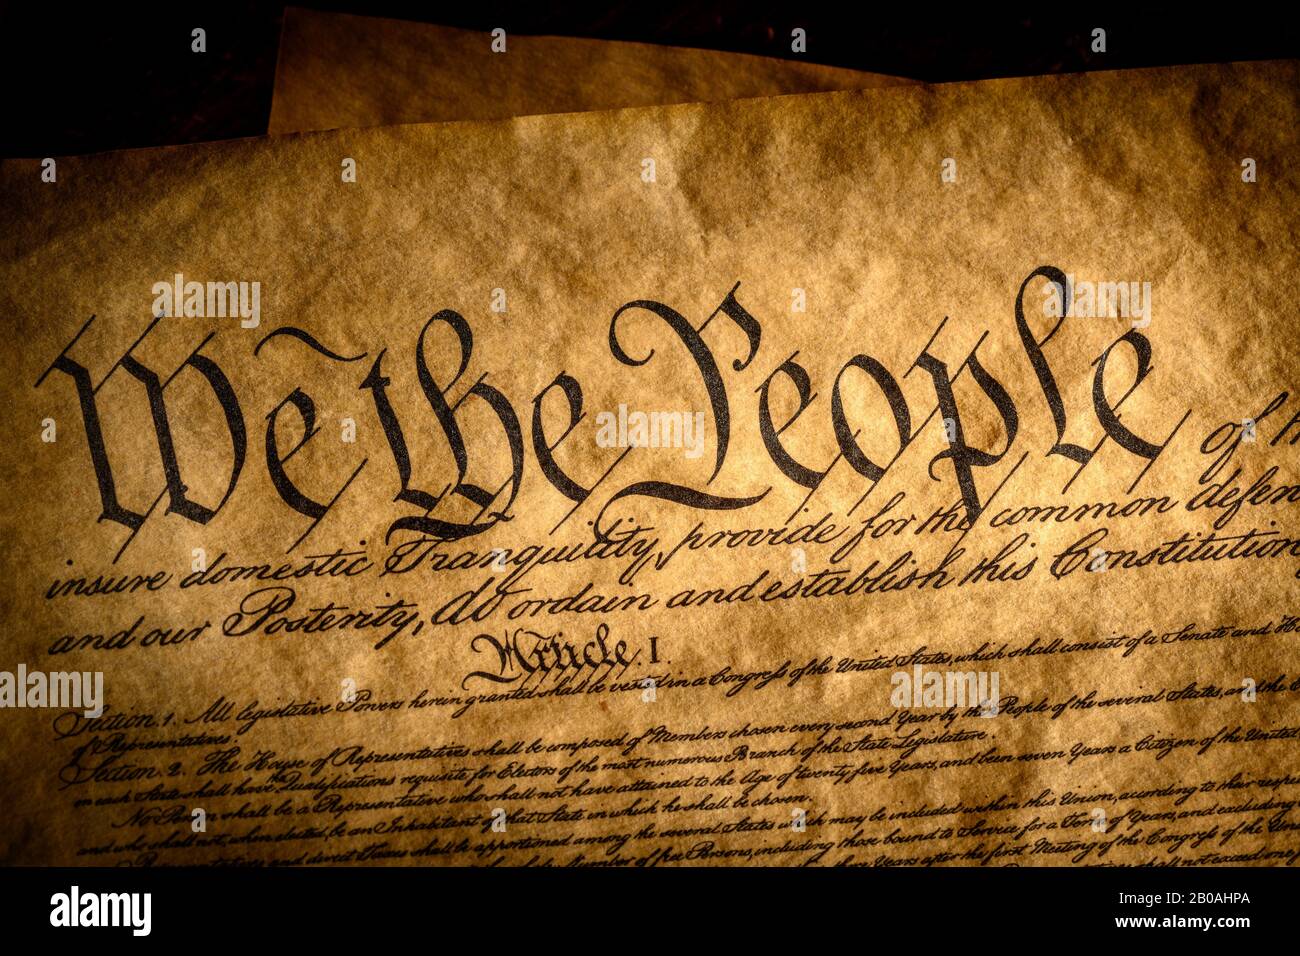 We the People of th
insure domestic Tranquility, provide for the common defen
and our Posterity, do ordain and establish this Constitution
Article. I.
Section. 1. All legislative Powers herein granted shall be vested in a Congress of the United States, which shall consist of a Senate and Ho
of Representatives.
Section. 2. The House of Representatives shall be composed of Members chosen every second Year by the People of the several States, and the E
in each State shall have the Qualifications requisite for Electors of the most numerous Branch of the State Legislature.
No Person shall be a Representative who shall not have attained to the Age of twenty five Years, and been seven Years a Citizen of the United
and who shall not, when elected, be an Inhabitant of that State in which he shall be chosen.
Representatives and direct Taxes shall be apportioned among the several States which may be included within this Union, according to their respec
Number of free Persons, including those bound to Service for a Term of Years, and excluding
Years after the first Meeting of the Congress of the Un
shall not exceed one f
alamy
alamy
alamy
alamy
alamy
alamy
Image ID: 2B0AHPA
www.alamy.com